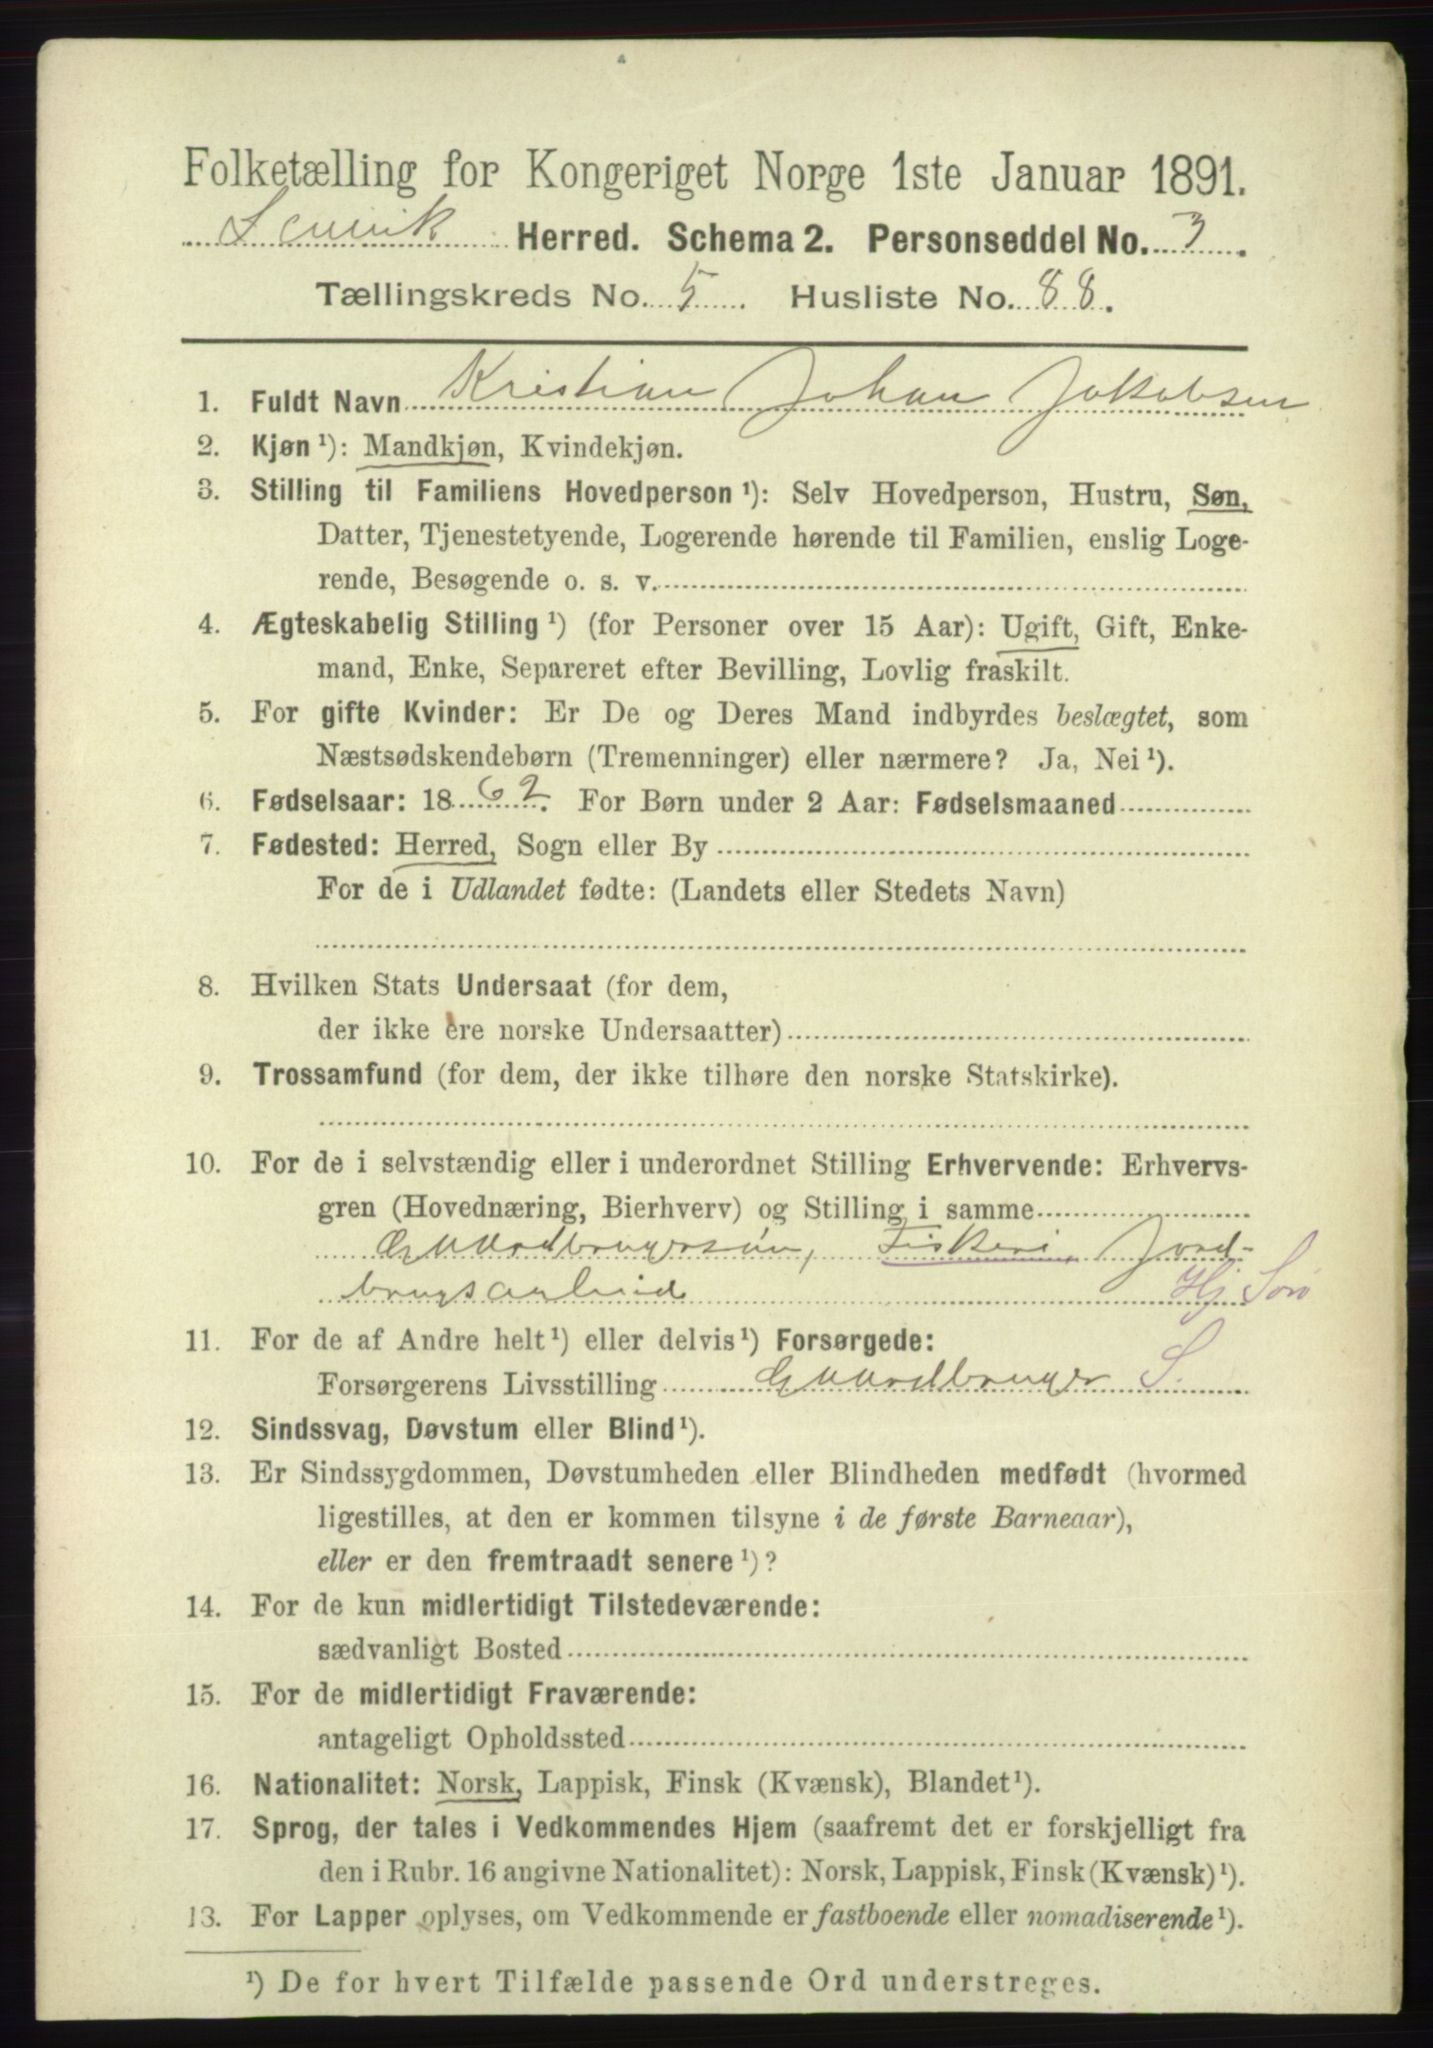 Folketælling for Kongeriget Norge 1ste Januar 1891.
Lenvik Herred. Schema 2. Personseddel No. 3.
Tællingskreds No. 5. Husliste No. 88.
1. Fuldt Navn Kristian Johan Jakobsen
2. Kjøn ¹): Mandkjøn, Kvindekjøn.
3. Stilling til Familiens Hovedperson ¹): Selv Hovedperson, Hustru, Søn,
Datter, Tjenestetyende, Logerende hørende til Familien, enslig Loge-
rende, Besøgende o. s. v.
4. Ægteskabelig Stilling ¹) (for Personer over 15 Aar): Ugift, Gift, Enke-
mand, Enke, Separeret efter Bevilling, Lovlig fraskilt.
5. For gifte Kvinder: Er De og Deres Mand indbyrdes beslægtet, som
Næstsødskendebørn (Tremenninger) eller nærmere? Ja, Nei ¹).
6. Fødselsaar: 1862. For Børn under 2 Aar: Fødselsmaaned
7. Fødested: Herred, Sogn eller By
For de i Udlandet fødte: (Landets eller Stedets Navn)
8. Hvilken Stats Undersaat (for dem,
der ikke ere norske Undersaatter)
9. Trossamfund (for dem, der ikke tilhøre den norske Statskirke).
10. For de i selvstændig eller i underordnet Stilling Erhvervende: Erhvervs-
gren (Hovednæring, Bierhverv) og Stilling i samme
Gaardbrugersøn, Fiskeri, Jord-
brugsarbeid Hj Sø
11. For de af Andre helt ¹) eller delvis ¹) Forsørgede:
Forsørgerens Livsstilling Gaardbruger S.
12. Sindssvag, Døvstum eller Blind ¹).
13. Er Sindssygdommen, Døvstumheden eller Blindheden medfødt (hvormed
ligestilles, at den er kommen tilsyne i de første Barneaar),
eller er den fremtraadt senere ¹)?
14. For de kun midlertidigt Tilstedeværende:
sædvanligt Bosted
15. For de midlertidigt Fraværende:
antageligt Opholdssted
16. Nationalitet: Norsk, Lappisk, Finsk (Kvænsk), Blandet ¹).
17. Sprog, der tales i Vedkommendes Hjem (saafremt det er forskjelligt fra
den i Rubr. 16 angivne Nationalitet): Norsk, Lappisk, Finsk (Kvænsk) ¹).
13. For Lapper oplyses, om Vedkommende er fastboende eller nomadiserende ¹).
¹) De for hvert Tilfælde passende Ord understreges.